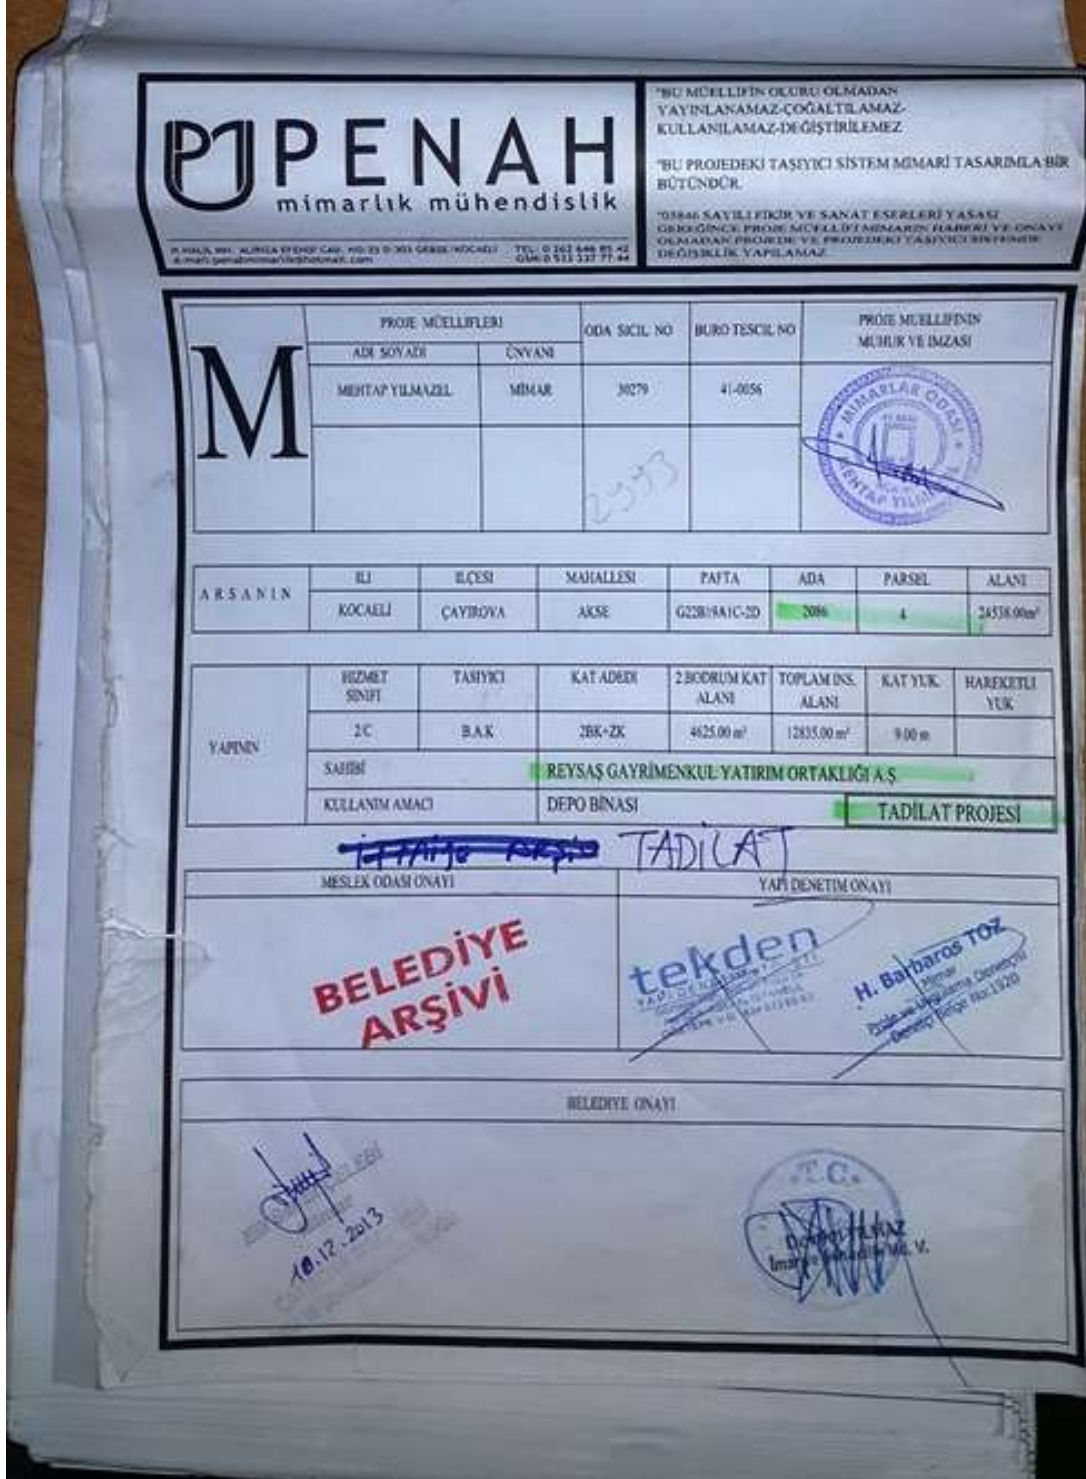 PENAH
mimarlık mühendislik
TEL: 0 262 646 85 42
"BU MÜELLİFİN OLURU OLMADAN
YAYINLANAMAZ-ÇOĞALTILAMAZ-
KULLANILAMAZ-DEĞİŞTİRİLEMEZ
"BU PROJEDEKİ TAŞIYICI SİSTEM MİMARİ TASARIMLA BİR
BÜTÜNDÜR.
SAYILI FİKİR VE SANAT ESERLERİ YASASI
GEREĞİNCE PROJE MÜELLİFİ MİMARIN HABERİ VE ONAYI
OLMADAN PROJEDE VE PROJEDEKİ TAŞIYICI SİSTEMDE
DEĞİŞİKLİK YAPILAMAZ
M
PROJE MÜELLİFLERİ
ODA SICIL NO
BURO TESCIL NO
PROJE MUELLIFININ
MUHUR VE IMZASI
ADI SOYADI
ÜNVANI
MEHTAP YILMAZEL
MİMAR
30279
41-0056
MIMARLAR ODASI
ARSANIN
ILI
ILÇESI
MAHALLESI
PAFTA
ADA
PARSEL
ALANI
KOCAELİ
ÇAYIROVA
AKSE
G22B19A1C-2D
2086
4
24538.00m²
YAPININ
HIZMET
SINIFI
TASIYICI
KAT ADEDI
2.BODRUM KAT
ALANI
TOPLAM INS.
ALANI
KAT YUK.
HAREKETLI
YUK
2C
B.A.K
2BK+ZK
4625.00 m²
12835.00 m²
9.00 m
SAHIBI
REYSAŞ GAYRİMENKUL YATIRIM ORTAKLIĞI A.Ş.
KULLANIM AMACI
DEPO BİNASI
TADİLAT PROJESİ
TADİLAT
MESLEK ODASI ONAYI
YAPI DENETIM ONAYI
BELEDİYE
ARŞİVİ
tekden
H. Barbaros TOZ
Mimar
Proje ve Uygulama Denetçisi
Denetçi Belge No:1920
BELEDIYE ONAYI
18.12.2013
T.C.